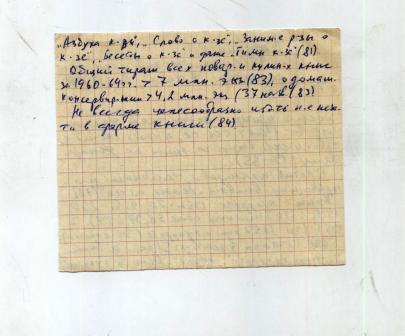 „Азбука к-ры“, „Слово о к-зе“, „Заним-е р-зы о
к-зе“, „Беседы о к-зе“ и даже „Гимн к-зе“ (81)
Общий тираж всех повар. и кулин-х книг
за 1960-64 гг. > 7 млн. экз (83), о домаш.
консервир-нии > 4,2 млн. экз (37 назв) (83)
Не всегда целесообразно
в форме книги (84)